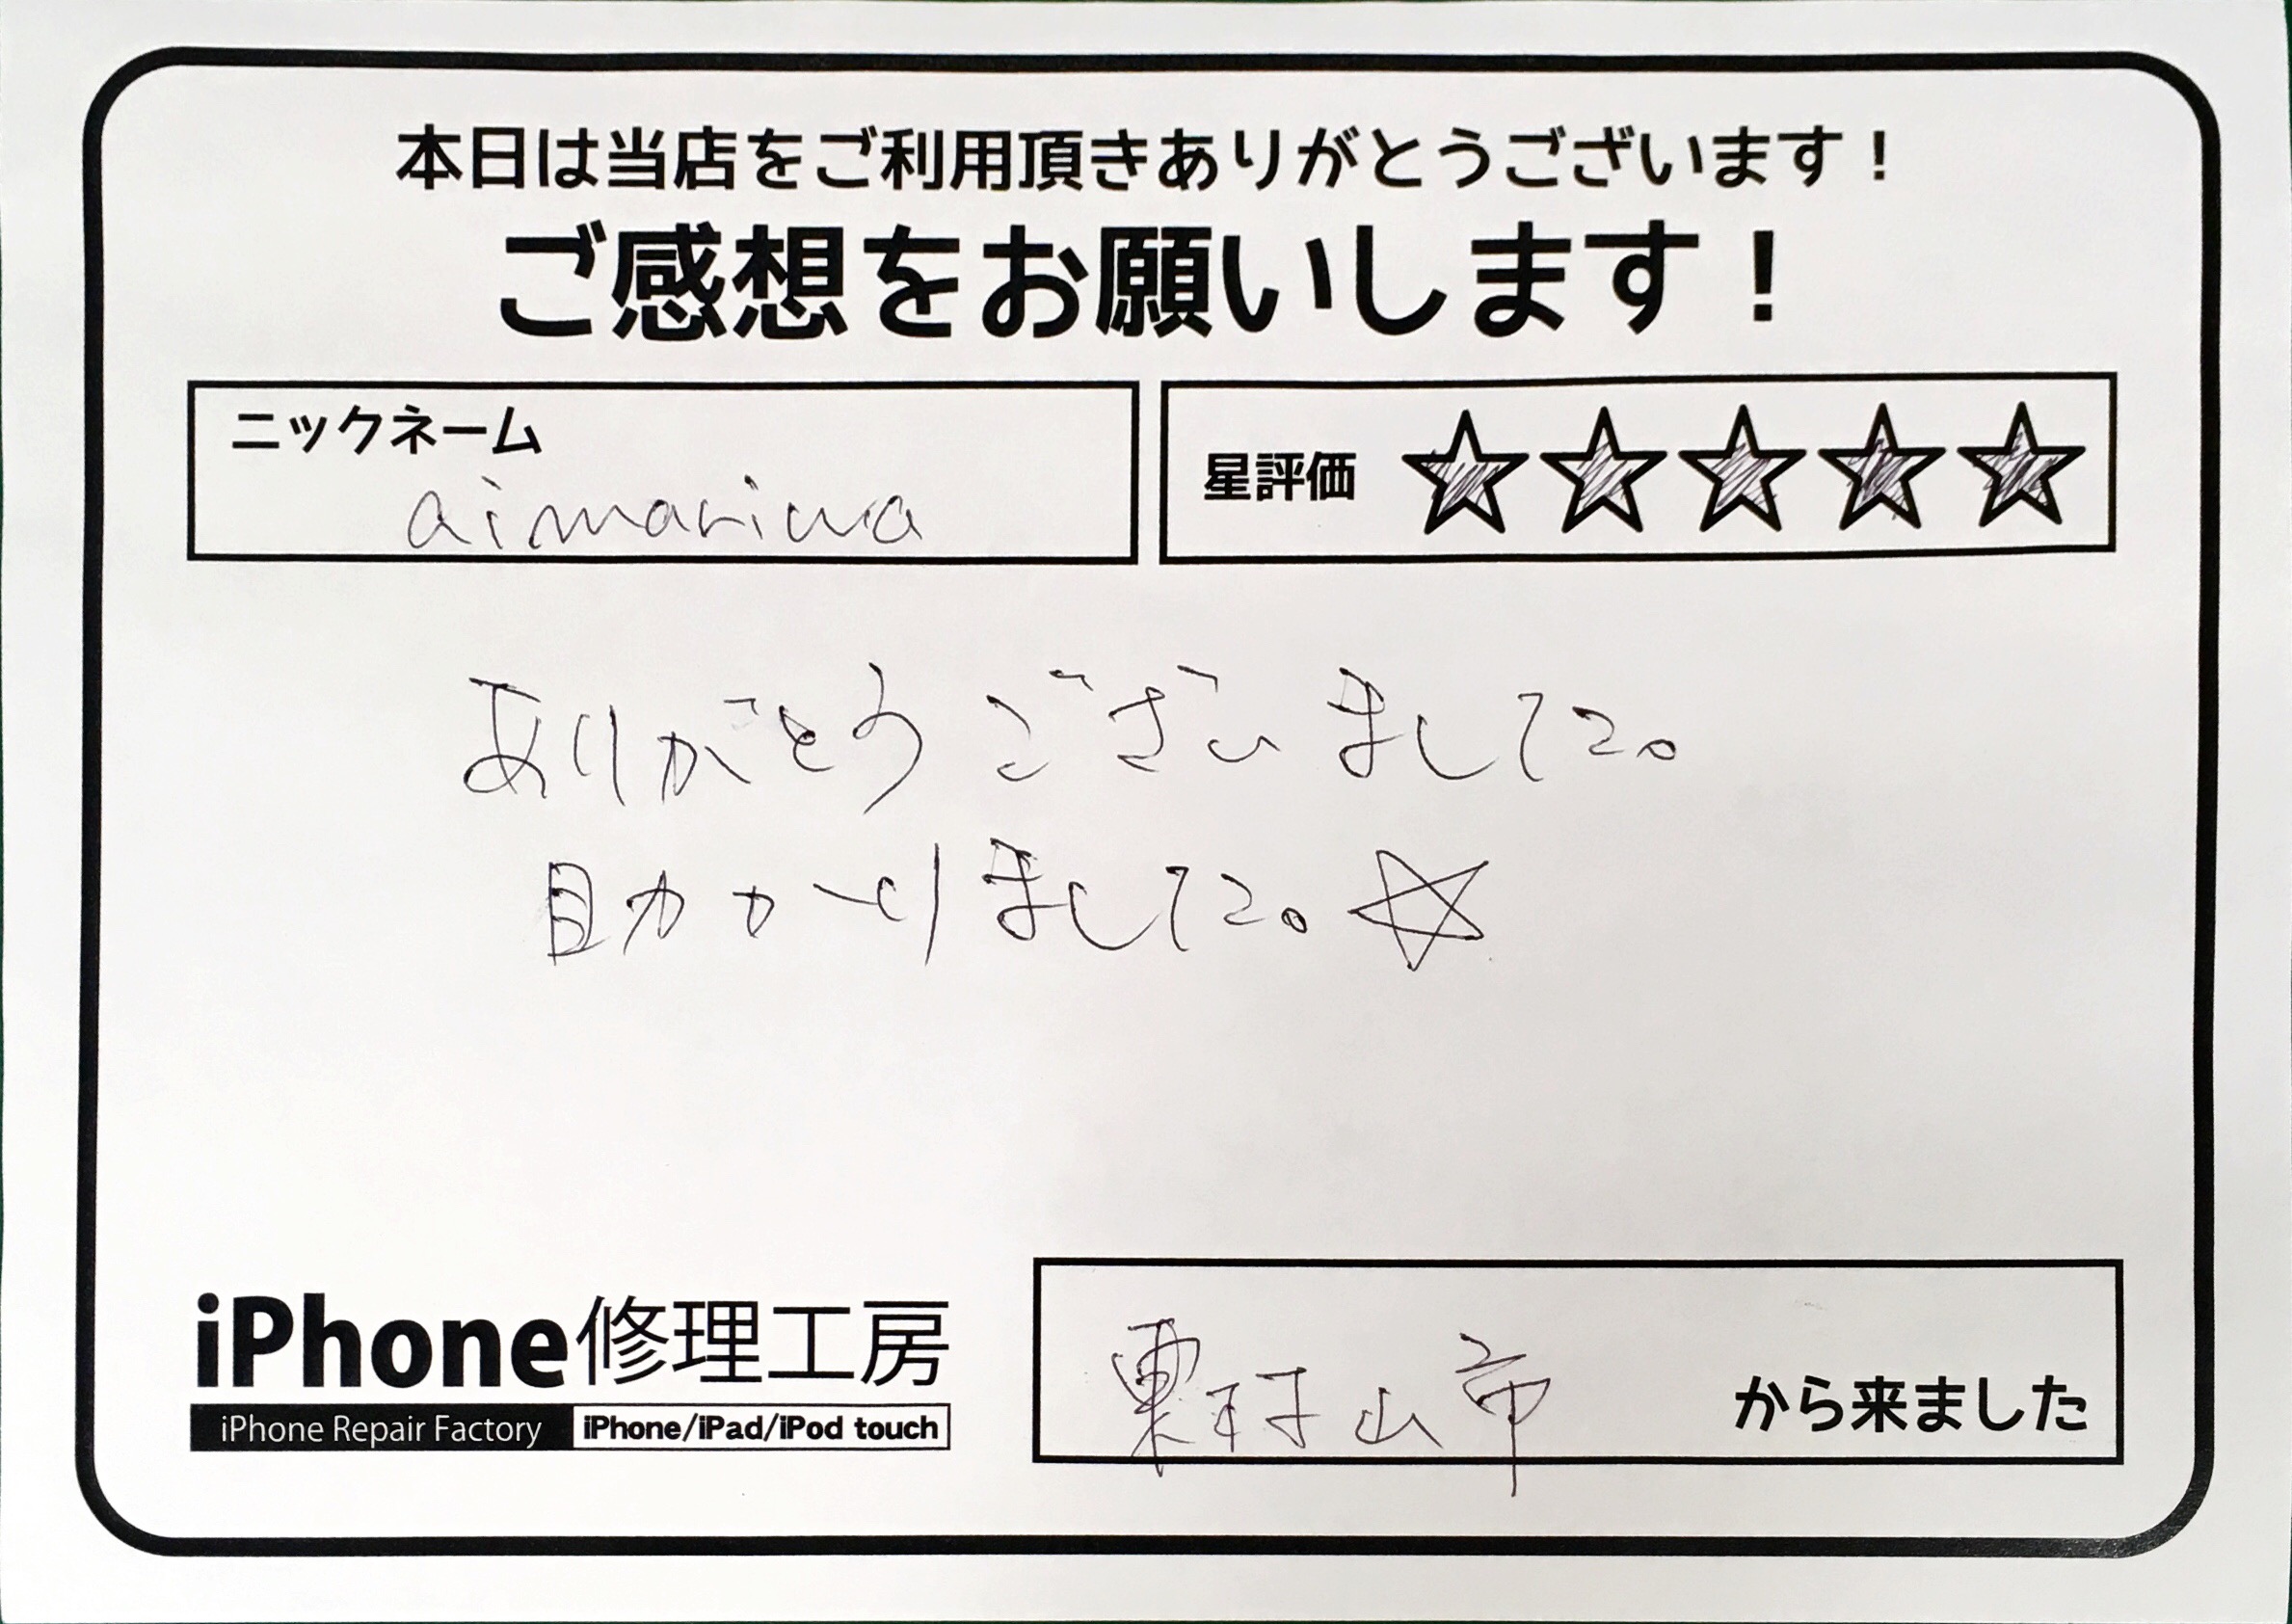 本日は当店をご利用頂きありがとうございます！
ご感想をお願いします！
ニックネーム
aimariwa
星評価 ☆☆☆☆☆
ありがとうございました。
助かりました。☆
iPhone修理工房
iPhone Repair Factory iPhone/iPad/iPod touch
東村山市 から来ました